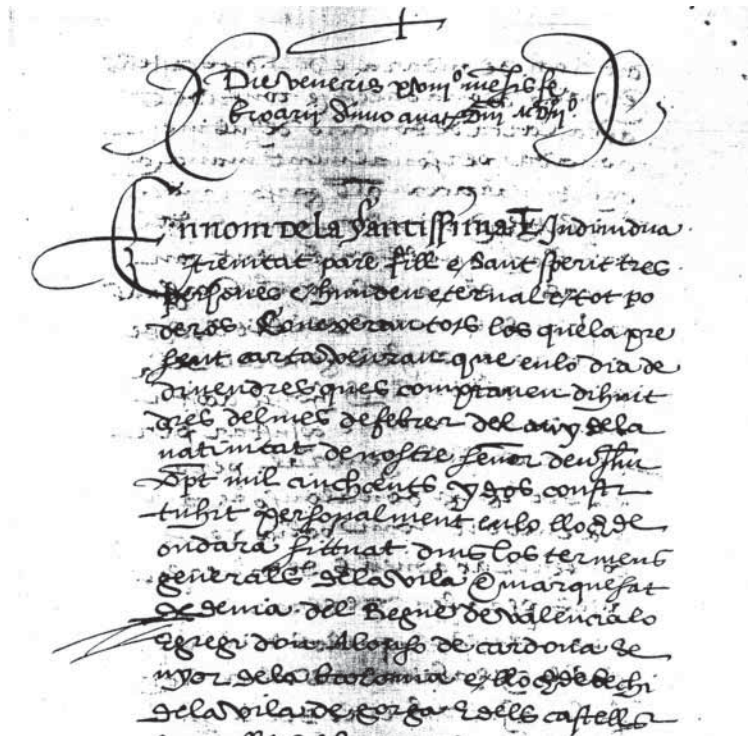 Die veneris xviiiº mēsis fe
broarii āno a nat̄ D̄ni MDiiº
En nom de la Santissima E Indiuidua
trenitat pare fill e Sant sperit tres
persones e hun deu eternal e tot po
deros Conexeran tots los que la pre
sent carta veuran que en lo dia de
diuendres ques comptauen dihuit
dies del mes de febrer del any de la
natiuitat de nostre senyor deu Jh̄u
Xp̄t mil cinchcents y dos constí
tuhit personalment en lo lloch de
ondara sittuat dins los termens
generals de la vila e marquesat
de denia del Regne de valencia lo
Egregi don Alonso de cardona se
nyor de la e lloch de bechi
de la vila de gorga e dels castells